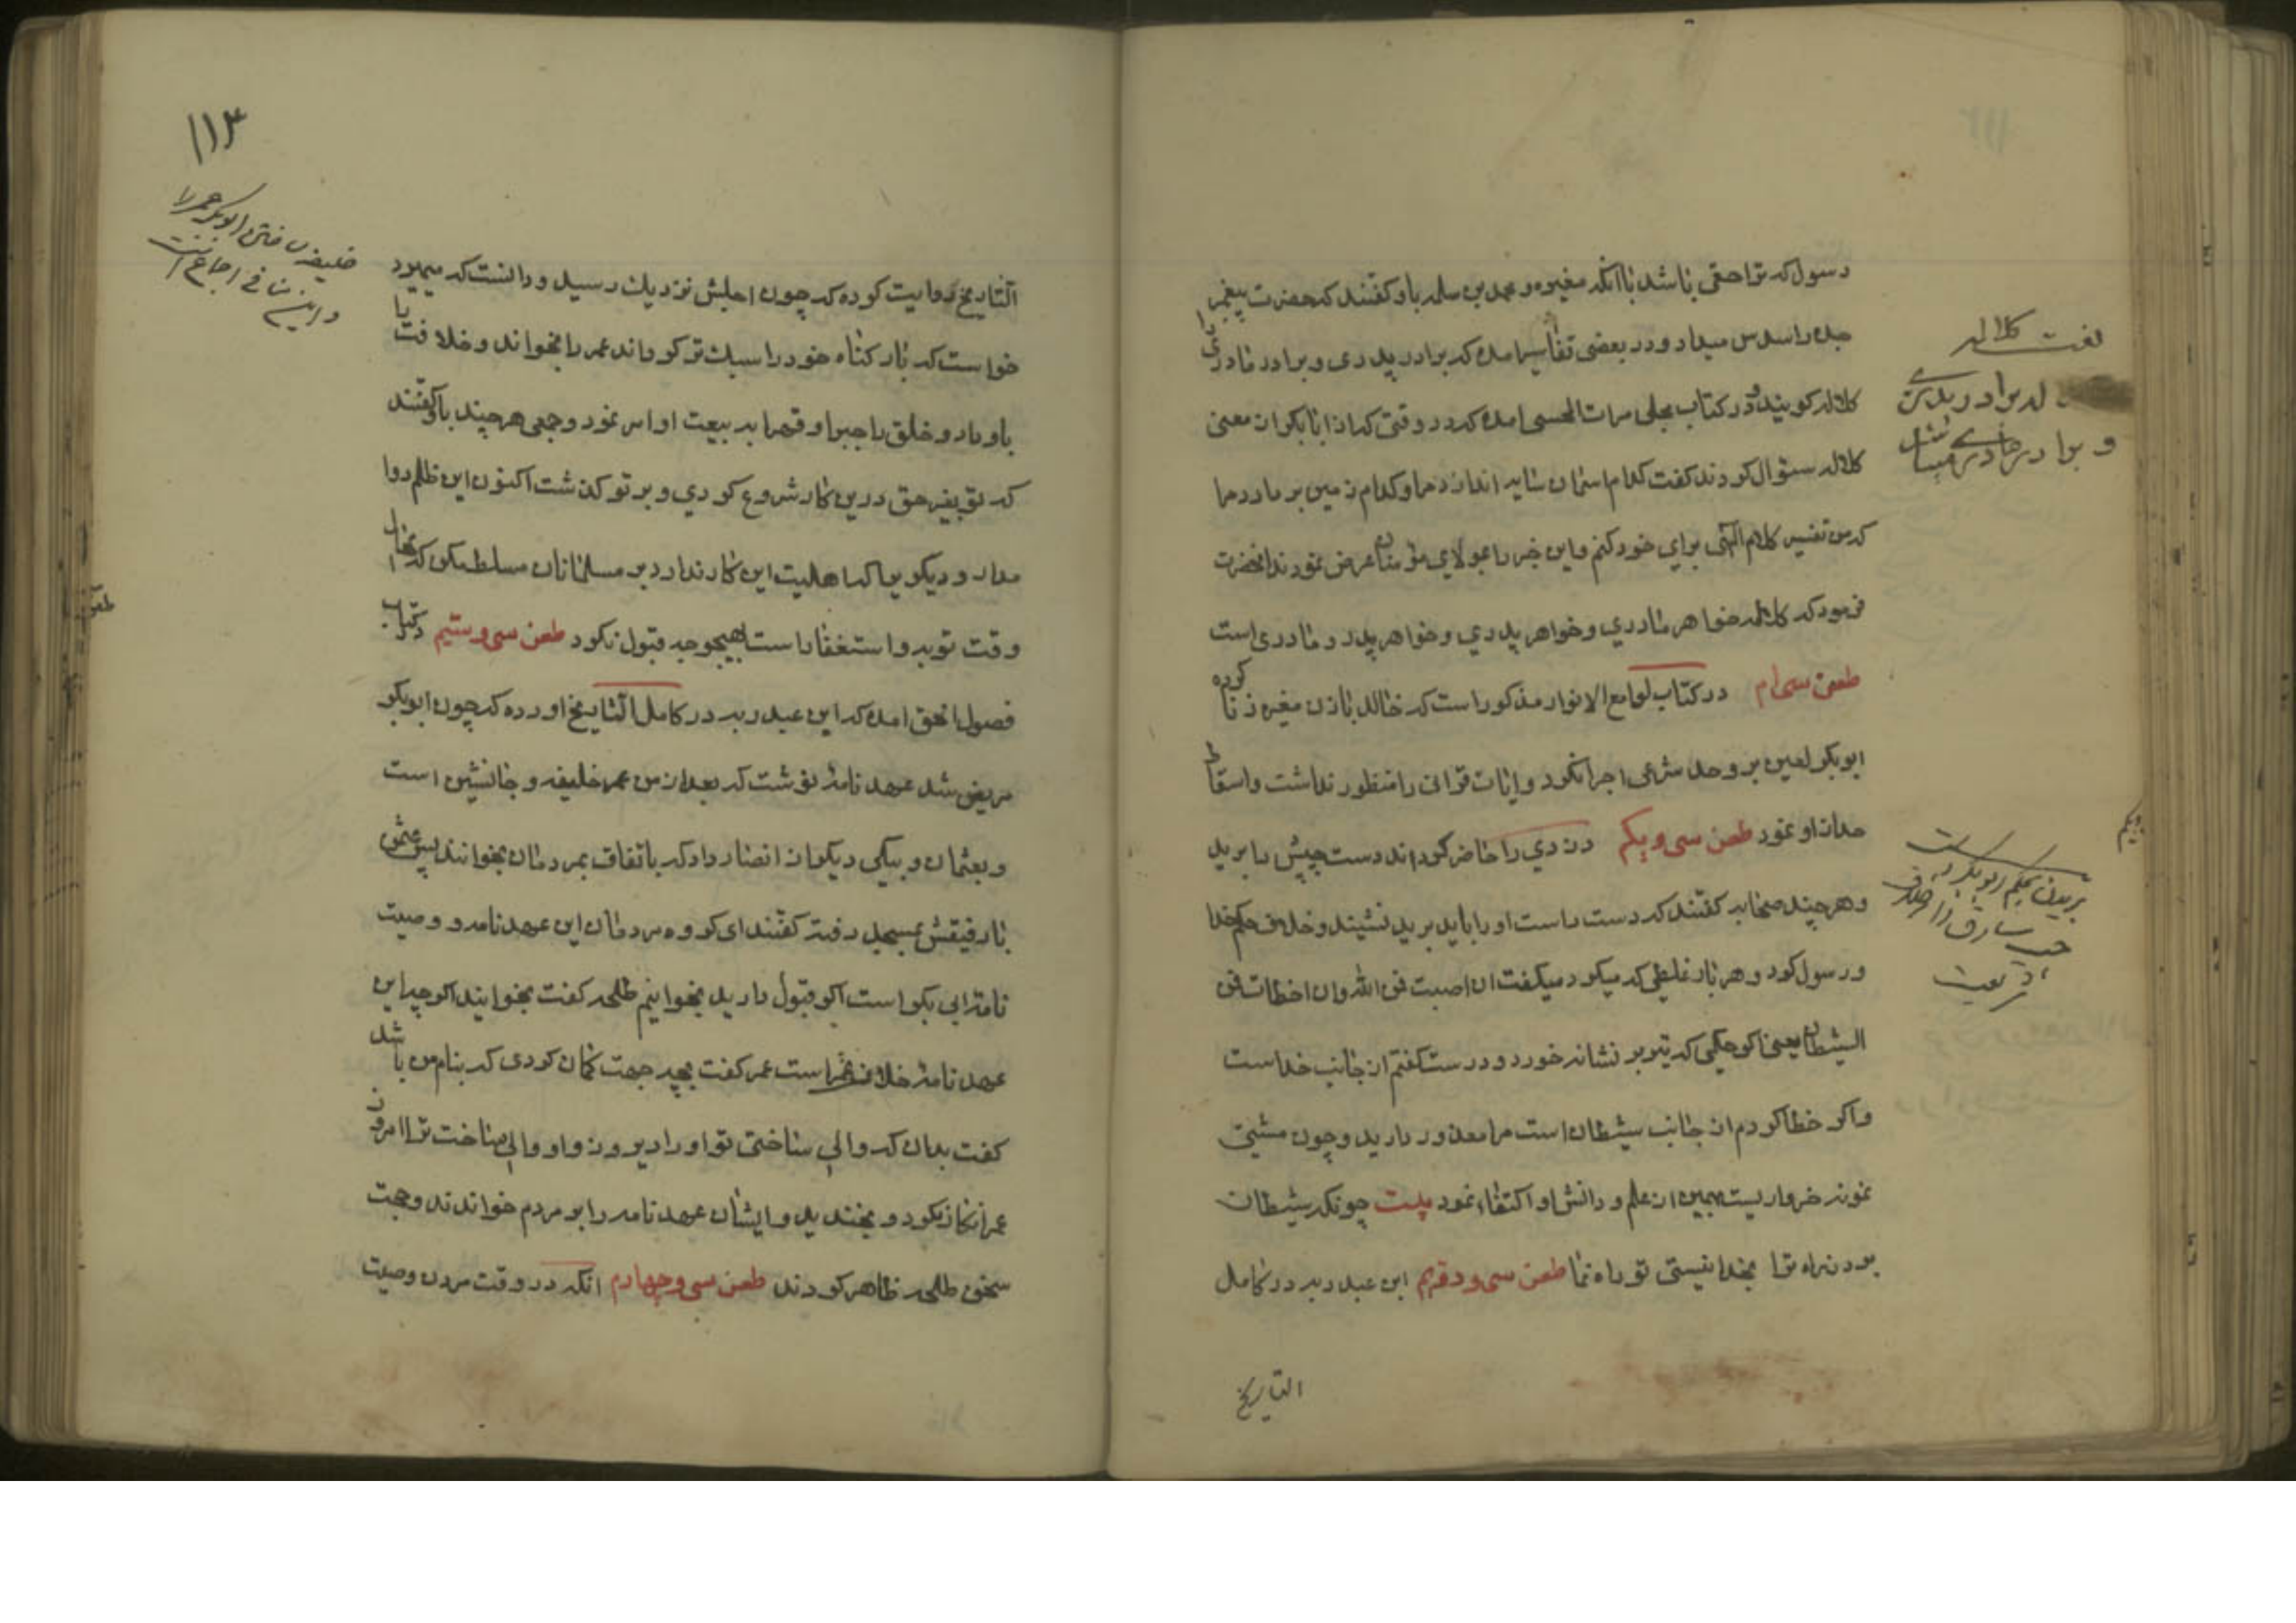 رسول که ترا حقی باشد با آنکه مغیره و محمد بن سلمه باو کفتند که حضرت پیغمبر
جده را سدس میداد و در بعضی تفاسیر امده که برادر پدری و برادر مادری را
کلاله کویند و در کتاب مجلی مرات المحسی امده که در وقتی که از ابابکر از معنی
کلاله سئوال کردند کفت کدام اسمان سایه اندازدم و کدام زمین بر داردم
که من تفسیر کلام الهی برای خود کنم و این خبر را بمولای مؤمنان عرض نمودند انحضرت
فرمود که کلاله خواهر مادری و خواهر پدری و خواهر پدر و مادری است
طعن سی ام در کتاب لوامع الانوار مذکور است که خالد با زن مغیره زنا کرده
ابوبکر لعین بر وحد شرعی اجرا نکرد و ایات قرانی را منظور نداشت و اسقاط
حد از او نمود طعن سی و یکم دزدی را حاضر کردند دست چپش را برید
و هر چند صحابه کفتند که دست راست او را باید برید نشنید و خلاف حکم خدا
و رسول کرد و هر بار غلیطی که میکرد میکفت ان اصبت فمن الله وان اخطات فمن
الشیطان یعنی اکر حکمی که تیر بر نشانه خورد و درست کفتم از جانب خداست
و اکر خطا کردم از جانب شیطان است مرا معذور دارید و چون مشتی
نمونه خرواریست بهمین از علم و دانش او اکتفا نمود بیت چونکه شیطان
برد ز راه ترا بخدا نیستی تو راه نما طعن سی و دویم ابن عبد ربه در کامل
التاریخ
لغت کلاله
له برادر پدری
و برادر مادری میباشد
بریدن بحکم ابوبکر دست
چپ سارق را خلاف
شریعت
۱۱۳
خلیفه ساختن ابوبکر عمر را
و این منافی اجماع است
التاریخ روایت کرده که چون اجلش نزدیك رسید و دانست که میمیرد
خواست که بار کناه خود را سبك تر کرداند عمر را بخواند و خلافت را
باو داد و خلق را جبرا و قهرا به بیعت او امر نمود و جمعی هر چند باو کفتند
که تو بغیر حق درین کار شروع کردی و بر تو کذشت اکنون این ظلم روا
مدار و دیکری را که اهلیت این کار ندارد بر مسلمانان مسلط مکن که
وقت توبه و استغفار است بهیچوجه قبول نکرد طعن سی و سیم در کتاب
فصول الحق امده که ابن عبد ربه در کامل التاریخ اورده که چون ابوبکر
مریض شد عهد نامه نوشت که بعد از من عمر خلیفه و جانشین است
و بعثمان و بیکی دیکر از انصار داد که باتفاق بمردمان بخوانند پس عثمان
با رفیقش بمسجد رفته کفتند ای کروه مردمان این عهد نامه و وصیت
نامه ابی بکر است اکر قبول دارید بخوانیم طلحه کفت بخوانید اکر چه این
عهد نامه خلافت عمر است عمر کفت بچه جهت کمان کردی که بنام من باشد
کفت بدان که والی ساختی تو او را دیروز و او والی ساخت ترا امروز
عمر انکار نکرد و بخندید و ایشان عهد نامه را بر مردم خواندند و حجت
سخن طلحه ظاهر کردند طعن سی و چهارم انکه در وقت مردن وصیت